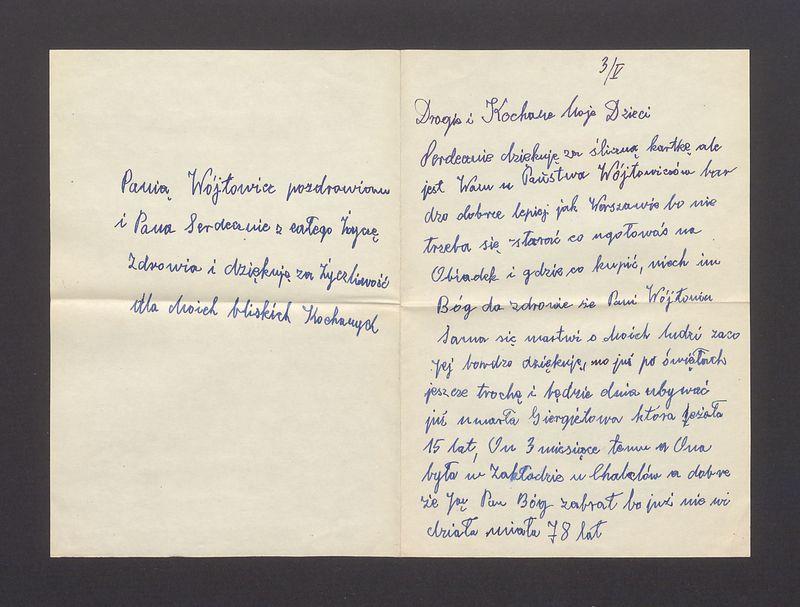 Panią Wójtowicz pozdrowione
i Pana Serdecznie z całego Życzę
Zdrowia i dziękuję za Życzliwość
dla Moich bliskich Kochanych
3/V
Drogie i Kochane Moje Dzieci
Serdecznie dziękuję za śliczną kartkę ale
jest Wam u Państwa Wójtowiczów bar
dzo dobrze lepiej jak Warszawie bo nie
trzeba się starać co ugotować na
Obiadek i gdzie co kupić, niech im
Bóg da zdrowie że Pani Wójtowicz
Sama się martwi o Moich ludzi zaco
jej bardzo dziękuję, no już po świętach
jeszcze trochę i będzie dnia ubywać
już umarła Giergielowa która leżała
15 lat, On 3 miesiące temu a Ona
była w Zakładzie w a dobrze
że Ją Pan Bóg zabrał bo już nie wi
działa miała 78 lat